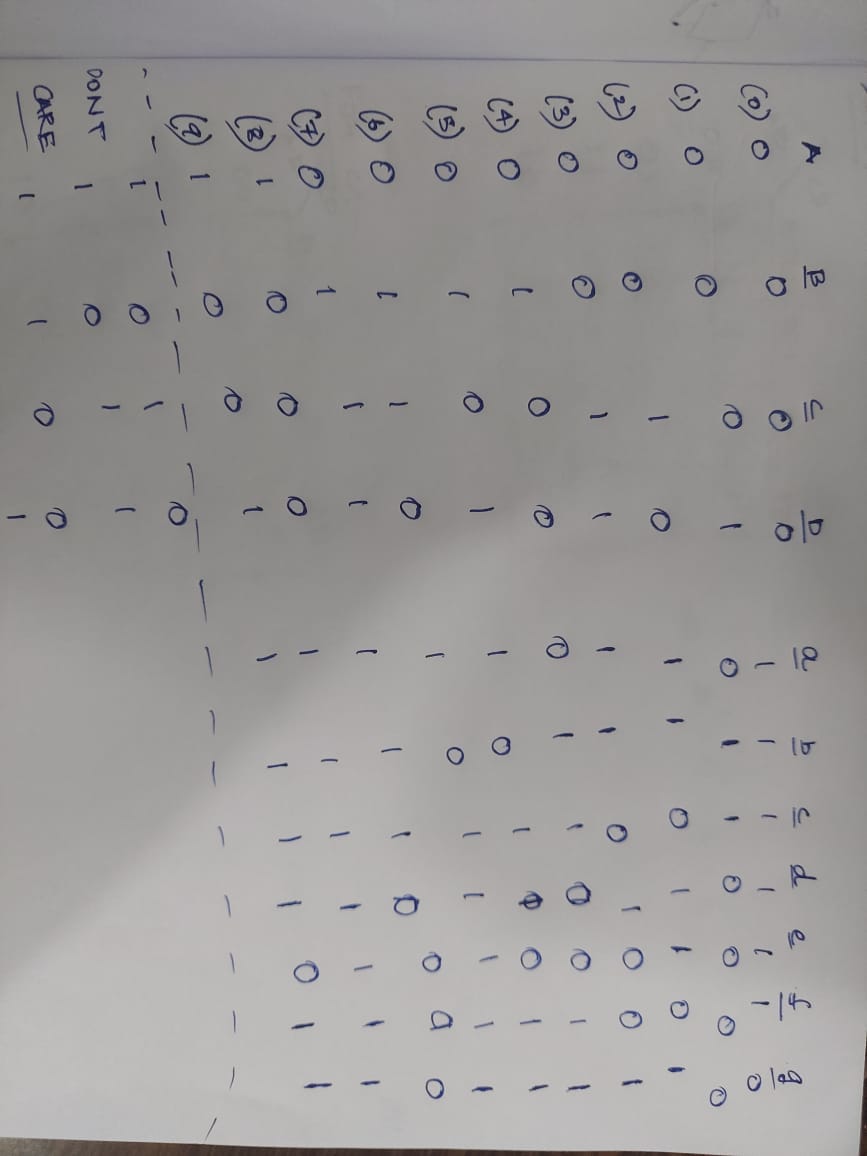 A B C D a b c d e f g
(0) 0 0 0 0 1 1 1 1 1 1 0
(1) 0 0 0 1 0 1 1 0 0 0 0
(2) 0 0 1 0 1 1 0 1 1 0 1
(3) 0 0 1 1 1 1 0 1 0 0 1
(4) 0 1 0 0 0 1 1 0 0 1 1
(5) 0 1 0 1 1 0 1 0 1 1
(6) 0 1 1 0 1 0 1 1 1 1 1
(7) 0 1 1 1 1 1 1 0 0 0 0
(8) 1 0 0 0 1 1 1 1 1 1 1
(9) 1 0 0 1 1 1 1 1 0 1 1
1 0 1 0
DONT 1 0 1 1
CARE 1 1 0 0
1